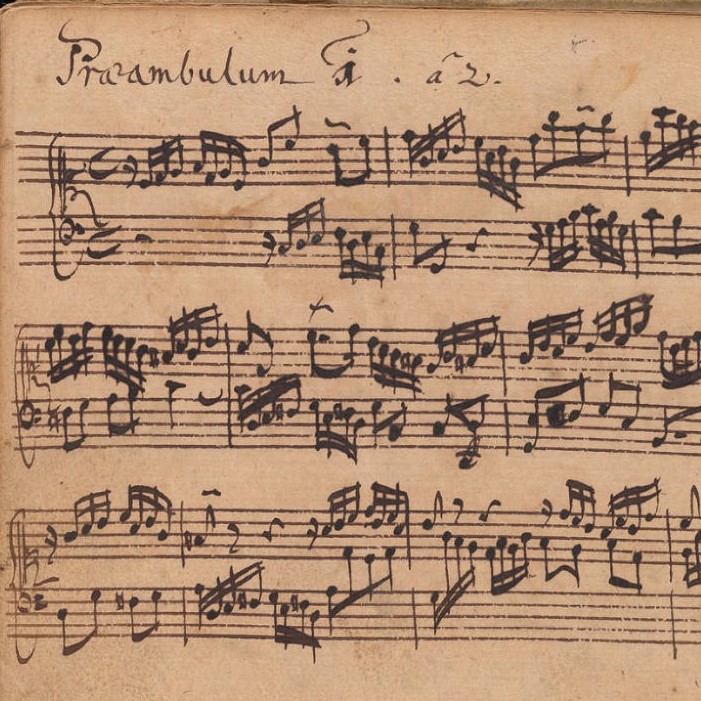 Præambulum 1 . à 2.